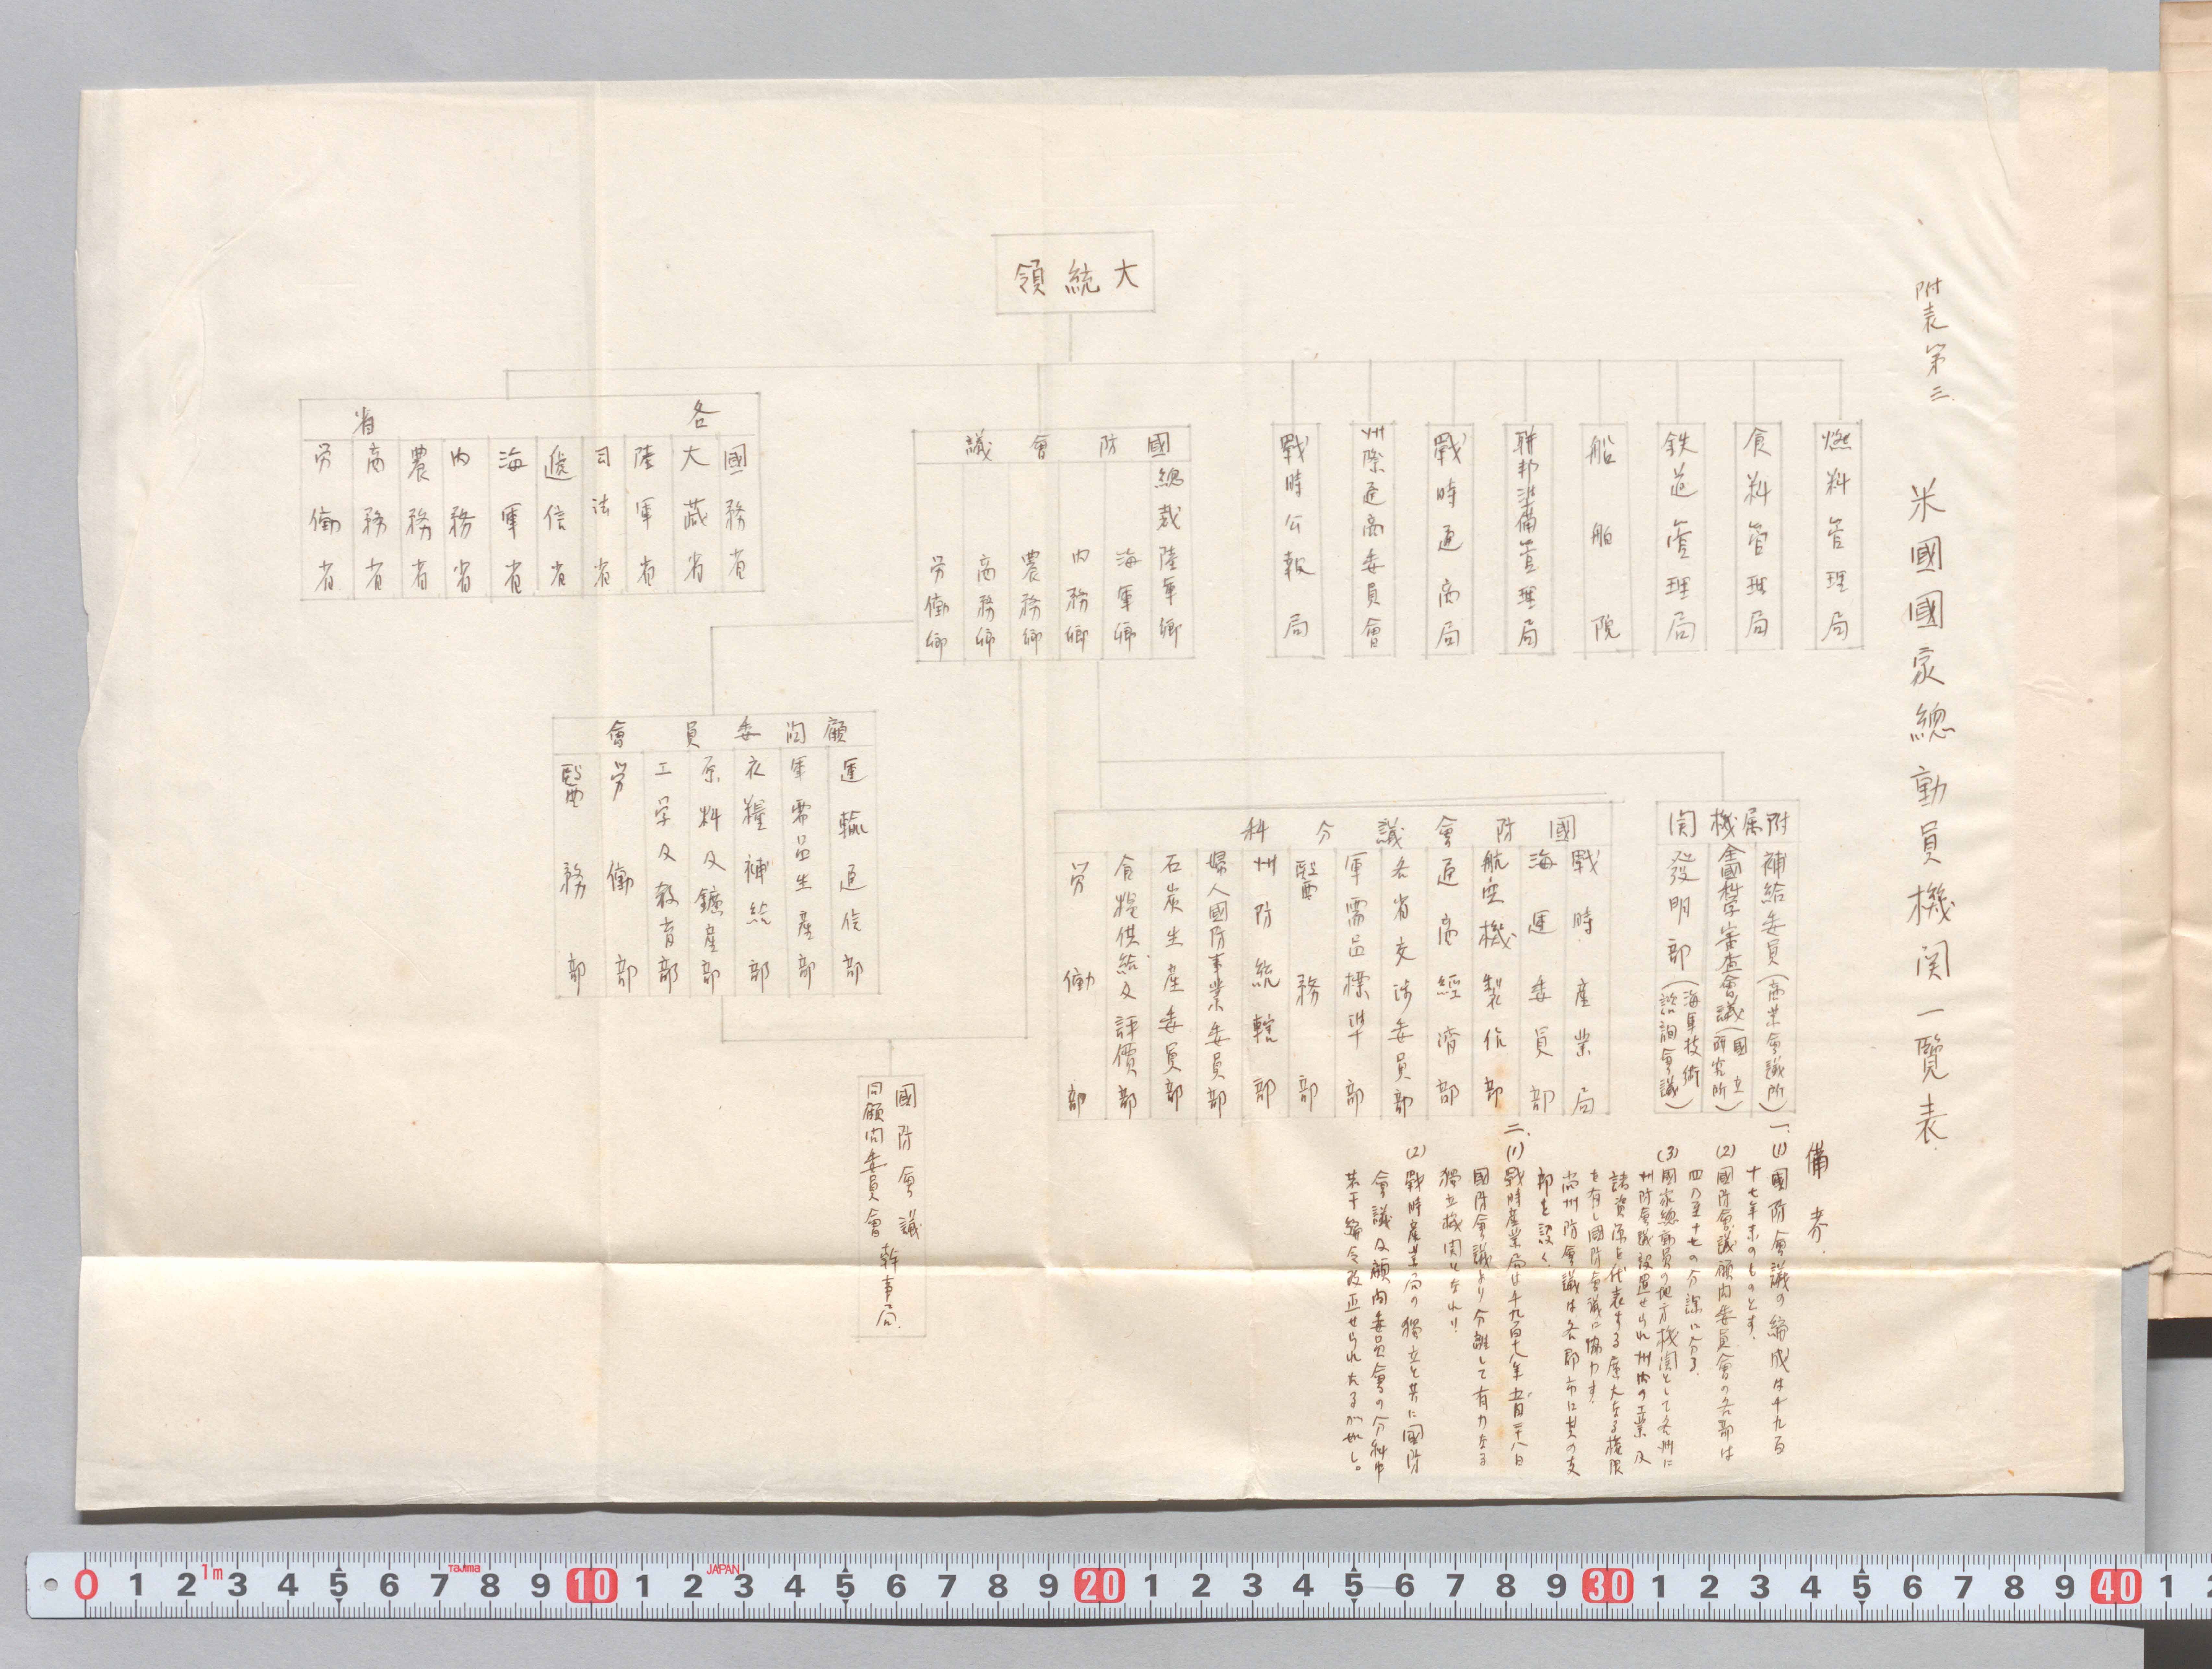 附表第三
米國國家總動員機関一覧表
大統領
燃料管理局
食料管理局
鉄道管理局
船舶院
聯邦準備管理局
戰時通商局
州際通商委員會
戰時公報局
國防會議
總裁陸軍卿
海軍卿
内務卿
農務卿
商務卿
労働卿
各省
國務省
大蔵省
陸軍省
司法省
逓信省
海軍省
内務省
農務省
商務省
労働省
附属機関
補給委員(商業會議所)
全國科学審査會議(國立研究所)
發明部(海軍技術諮詢會議)
國防會議分科
戰時産業局
海運委員部
航空機製作部
通商經濟部
各省交渉委員部
軍需品標準部
醫務部
州防統轄部
婦人國防事業委員部
石炭生産委員部
食糧供給及評價部
労働部
顧問委員會
運輸通信部
軍需品生産部
衣糧補給部
原料及鑛産部
工学及教育部
労働部
醫務部
國防會議
同顧問委員會幹事局
備考.
一、(1)國防會議の編成は千九百
十七年末のものとす.
(2)國防會議顧問委員會の各部は
四乃至十七の分課に分る.
(3)國家總動員の地方機関として各州に
州防會議設置せられ州内の工業及
諸資源を代表する廣大なる権限
を有し國防會議に協力す.
尚州防會議は各郡市に其の支
部を設く
二、(1)戰時産業局は千九百十八年五月二十八日
國防會議より分離して有力なる
獨立機関となれり.
(2)戰時産業局の獨立と共に國防
會議及顧問委員會の分科中
若干編令改正せられたるが如し。